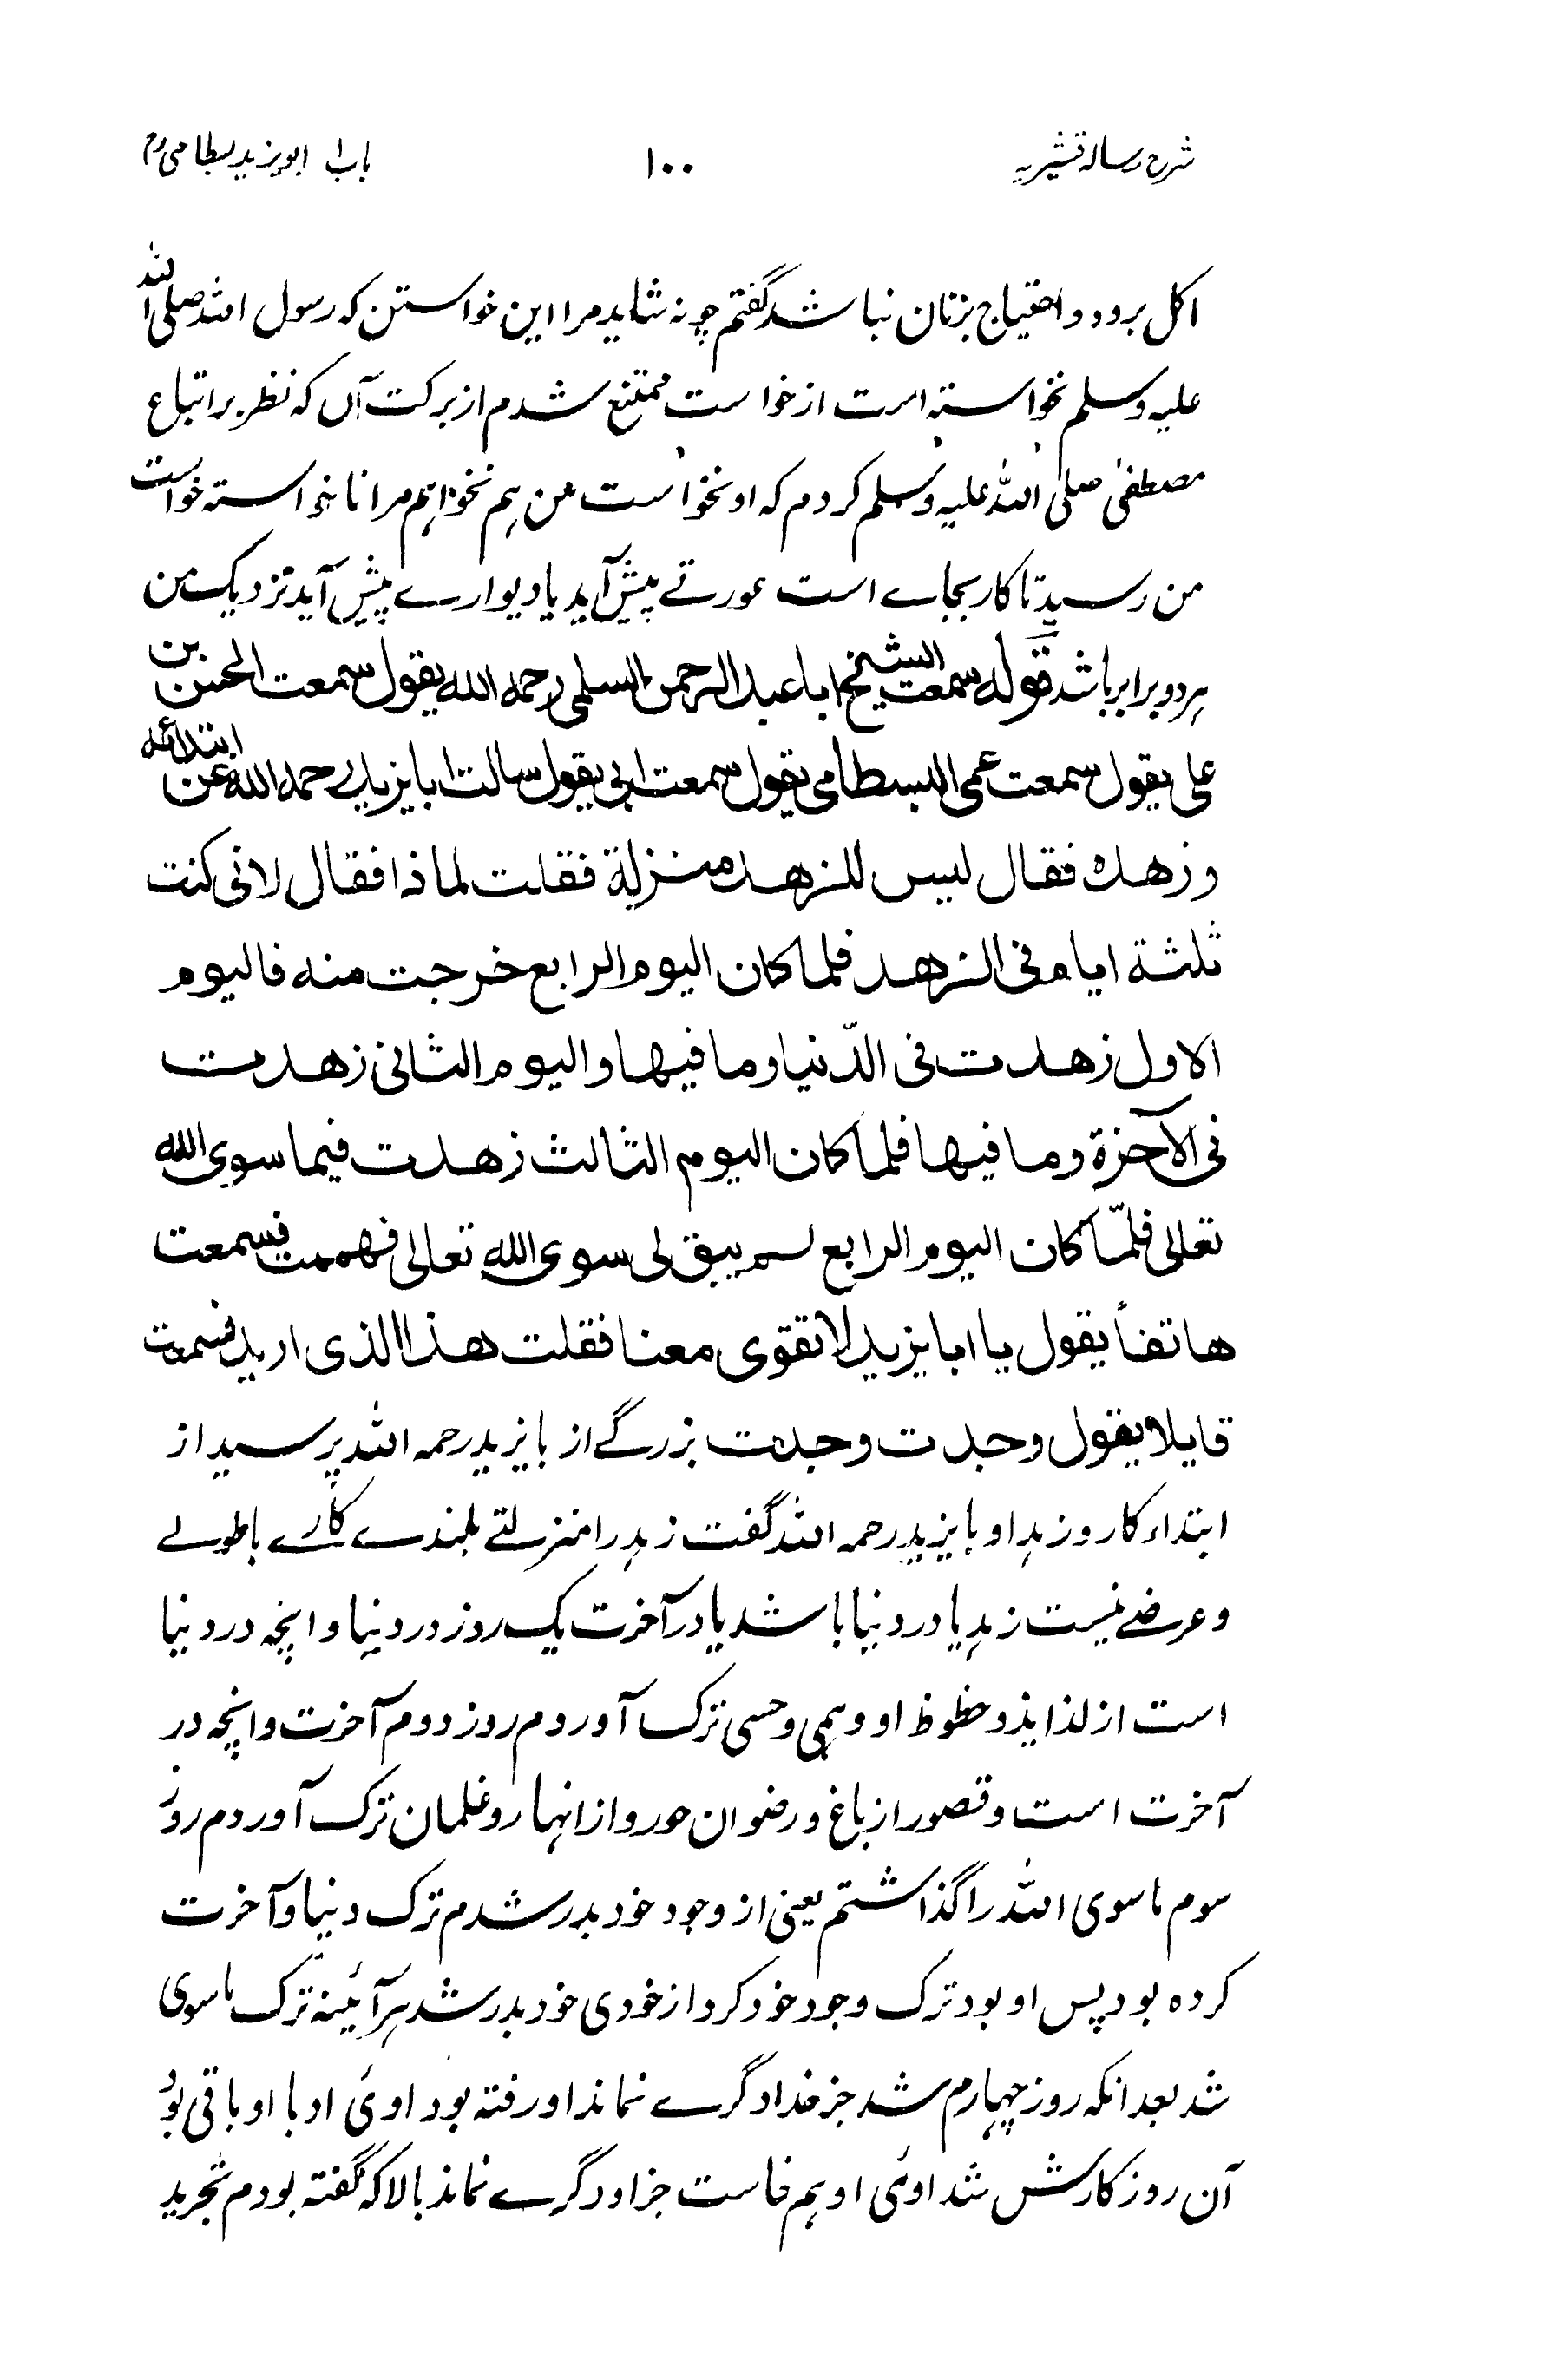 شرح رسالہ قشیریہ ۱۰۰ باب ۱ ابویزید بسطامی رح
اکل برود و احتیاج بزنان نباشد گفتم چونہ شاید مرا این خواستن کہ رسول اللہ صلی اللہ
علیہ وسلم نخواستہ است از خواست ممتنع شدم از برکت آں کہ نظر بر اتباع
مصطفیٰ صلی اللہ علیہ وسلم کردم کہ او نخواست من ہم نخواہم مرا ناخواستہ خواست
من رسید تا کار بجاے است عورتے پیش آید یا دیوارے پیش آید نزدیک من
ہر دو برابر باشد قوله سمعت الشیخ ابا عبد الرحمن السلمی رحمه الله یقول سمعت الحسن بن
علی یقول سمعت عمی البسطامی یقول سمعت ابی یقول سالت ابا یزید رحمه الله عن ابتدائه
و زهده فقال لیس للزهد منزلة فقلت لماذا فقال لانی کنت
ثلثة ایام فی الزهد فلما کان الیوم الرابع خرجت منه فالیوم
الاول زهدت فی الدّنیا وما فیها والیوم الثانی زهدت
فی الآخرة وما فیها فلما کان الیوم الثالث زهدت فیما سوی الله
تعالی فلمّا کان الیوم الرابع لم یبق لی سوی الله تعالی فهممت فسمعت
هاتفاً یقول یا ابا یزید لا تقوی معنا فقلت هذا الذی ارید فسمعت
قایلا یقول وجدت وجدت بزرگے از بایزید رحمہ اللہ پرسید از
ابتداء کار و زہد او بایزید رحمہ اللہ گفت زہد را منزلتے بلندے کارے با طولے
و عرضے نیست زہد یا در دنیا باشد یا در آخرت یک روز در دنیا و انچہ در دنیا
است از لذایذ و حظوظ او وہمی و حسی ترک آوردم روز دوم آخرت و انچہ در
آخرت است و قصور از باغ و رضوان حور و از انہار و غلمان ترک آوردم روز
سوم ماسوی اللہ را گذاشتم یعنی از وجود خود بدر شدم ترک دنیا و آخرت
کردہ بود پس او بود ترک وجود خود کرد از خودی خود بدر شد ہر آئینہ ترک ماسوی
شد بعد انکہ روز چہارم شد جز خدا دگرے نماند او رفتہ بود اوئ او با او باقی بود
آن روز کارش شد اوئ او ہم خاست جز او دگرے نماند بالا کہ گفتہ بودم تجرید